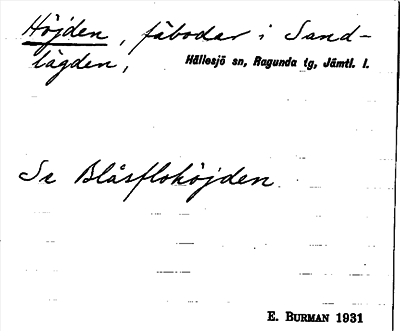 Höjden, fäbodar i Sand-
lägden,
Hällesjö sn, Ragunda tg, Jämtl. l.
Se Blåsflohöjden
E. BURMAN 1931